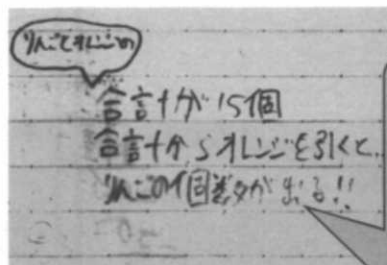 りんごとオレンジの
合計が15個
合計からオレンジを引くと
りんごの個数が出る!!